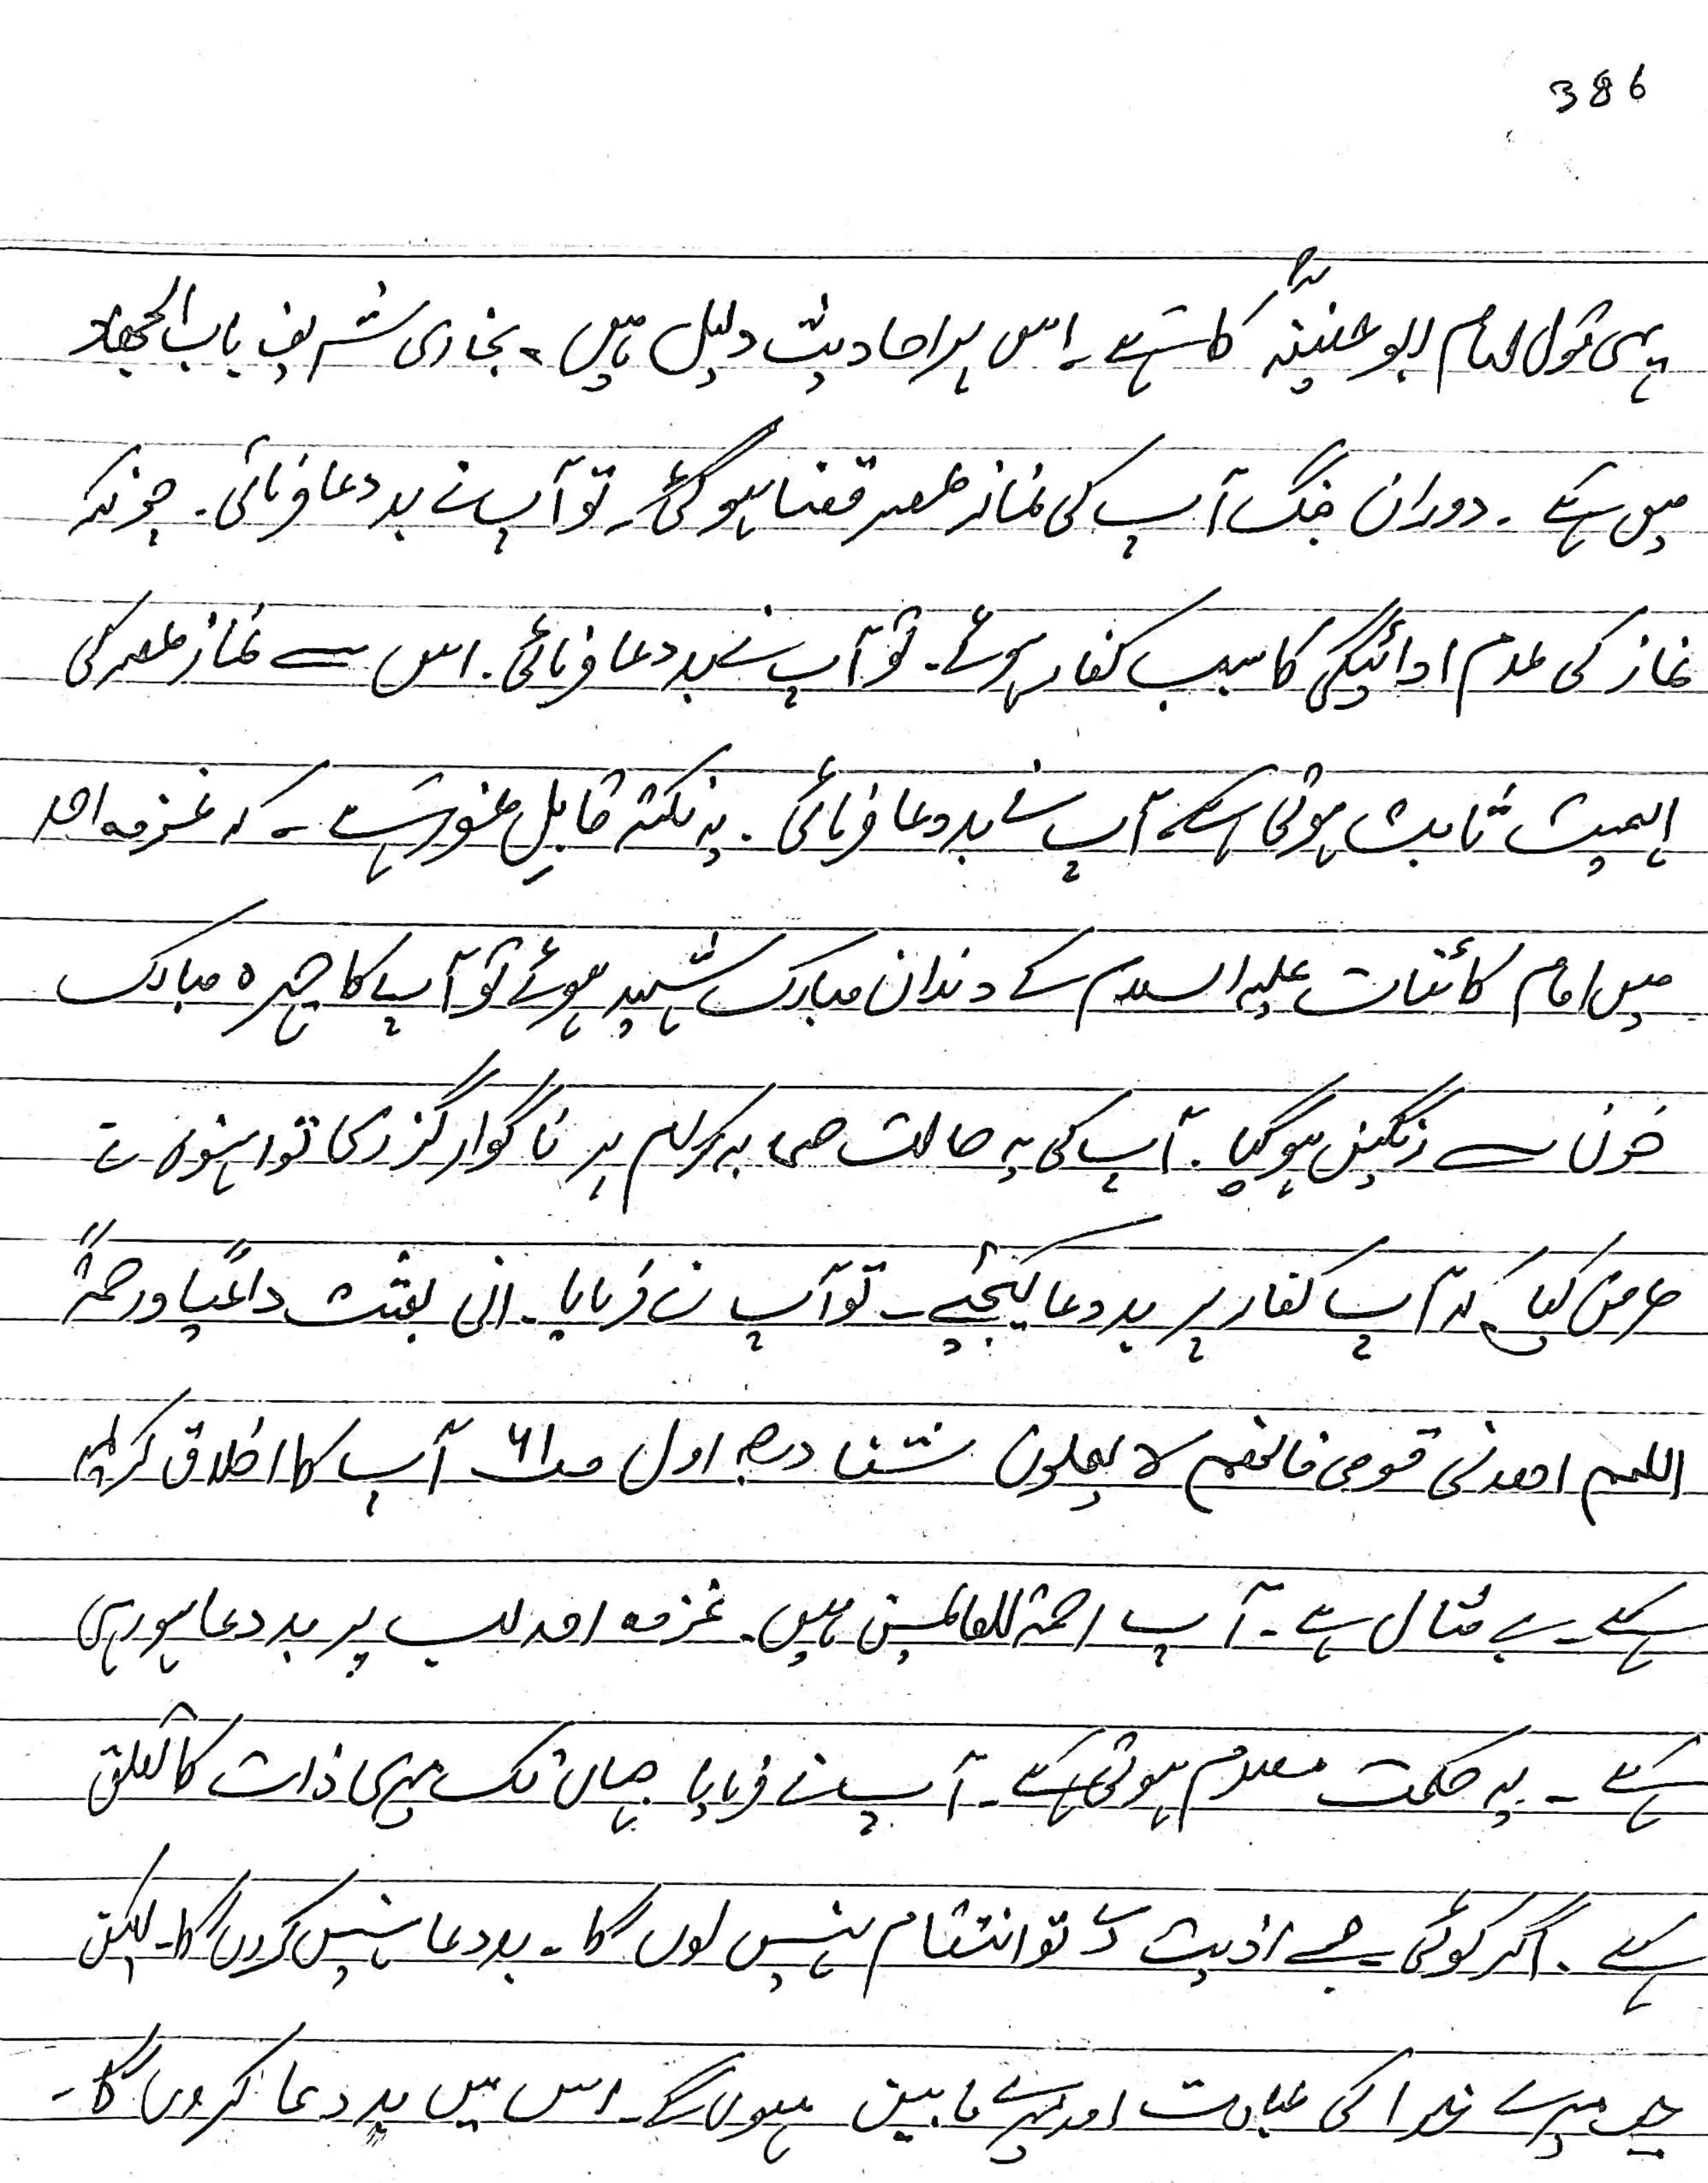 386
یہی قول امام ابو حنیفہؒ کا ہے۔ اس پر احادیث دلیل ہیں۔ بخاری شریف باب الجھاد
میں ہے۔ دوران جنگ آپ کی نماز عصر قضا ہو گئی۔ تو آپ نے بد دعا فرمائی۔ چونکہ
نماز کی عدم ادائیگی کا سبب کفار ہوئے۔ تو آپ نے بد دعا فرمائی۔ اس سے نماز عصر کی
اہمیت ثابت ہوتی ہے۔ آپ نے بد دعا فرمائی۔ یہ نکتہ قابلِ غور ہے۔ کہ غزوہ احد
میں امام کائنات علیہ السلام کے دندان مبارک شہید ہوئے تو آپ کا چہرہ مبارک
خون سے رنگین ہو گیا۔ آپ کی یہ حالت صحابہ کرام پر ناگوار گزری تو انہوں نے
عرض کیا کہ آپ کفار پر بد دعا کیجئیے۔ تو آپ نے فرمایا۔ انی بعثت داعیاً ورحمۃً
اللھم اھد قومی فانھم لا یعلمون شفا حصہ اول آپ کا اخلاق کریمہ
ہے۔ بے مثال ہے۔ آپ رحمۃ للعالمین ہیں۔ غزوہ احد پر بد دعا ہو رہی
ہے۔ یہ حکمت معلوم ہوتی ہے۔ آپ نے فرمایا جہاں تک میری ذات کا تعلق
ہے۔ اگر کوئی مجھے اذیت دے تو انتقام نہیں لوں گا۔ بد دعا نہیں کروں گا۔ لیکن
جو میرے خدا کی عبادت اور میرے مابین ہوں گے۔ اس میں بد دعا کروں گا۔